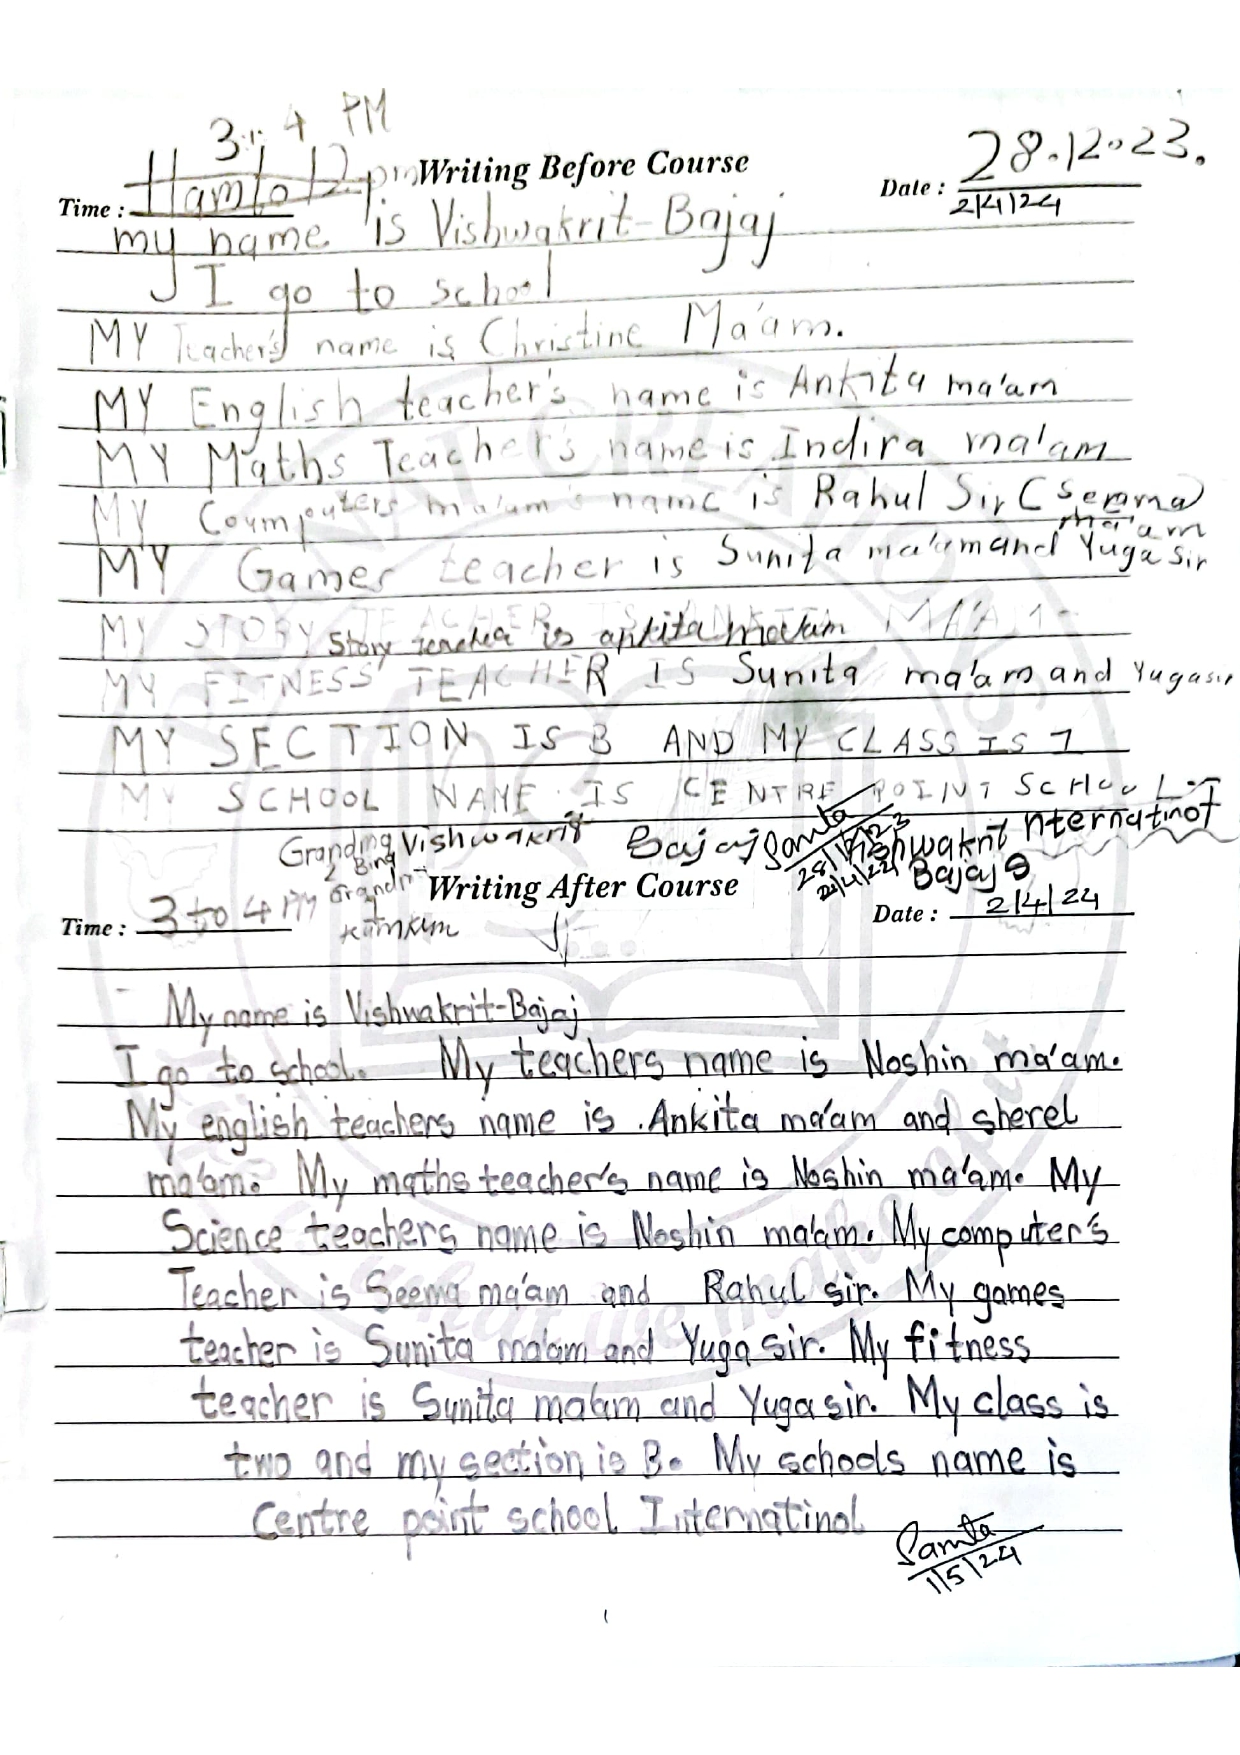 3 to 4 PM
Writing Before Course
28.12.23.
Time : 11am to 12 pm
Date : 2/4/24
my name is Vishwakrit-Bajaj
I go to school
MY Teacher's name is Christine Ma'am.
MY English teacher's name is Ankita ma'am
MY Maths Teacher's name is Indira ma'am
MY Coumputers ma'am's name is Rahul Sir C Semma
ma'am
MY Games teacher is Sunita ma'am and Yuga sir
MY STORY TEACHER IS ANKITA MAAM
Story teacher is ankita madam
MY FITNESS TEACHER IS Sunita ma'am and Yuga sir
MY SECTION IS B AND MY CLASS IS 1
MY SCHOOL NAME IS CENTRE POINT SCHOOL I
nternatinol
Vishwakrit Bajaj Samta
28/12/23
2/4/24
Vishwakrit
Bajaj
Writing After Course
Time : 3 to 4 PM
Date : 2/4/24
My name is Vishwakrit-Bajaj
I go to school. My teachers name is Noshin ma'am.
My english teachers name is .Ankita ma'am and sherel
ma'am. My maths teacher's name is Noshin ma'am. My
Science teachers name is Noshin ma'am. My computer's
Teacher is Seema ma'am and Rahul sir. My games
teacher is Sunita ma'am and Yuga sir. My fitness
teacher is Sunita ma'am and Yuga sir. My class is
two and my section is B. My schools name is
Centre point school Internatinol
Samta
1/5/24
1